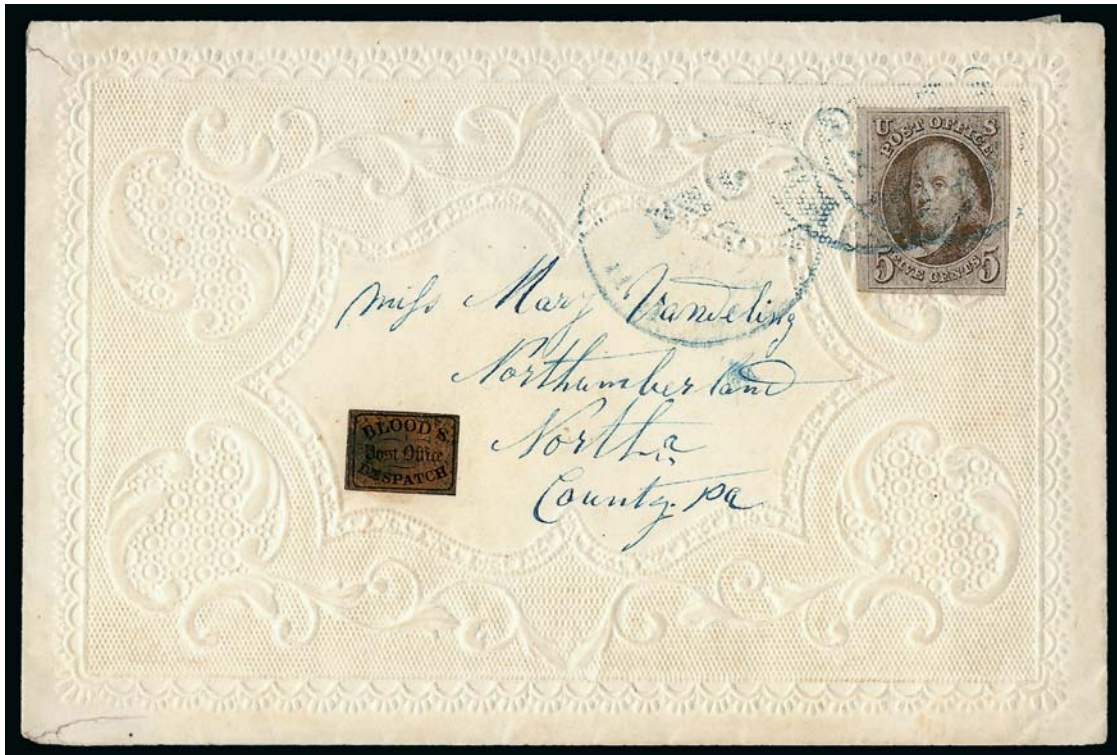 U S
POST OFFICE
5 FIVE CENTS 5
Miss Mary Vandeling
Northumberland
North.a
County. Pa
BLOOD'S
Post Office
DESPATCH